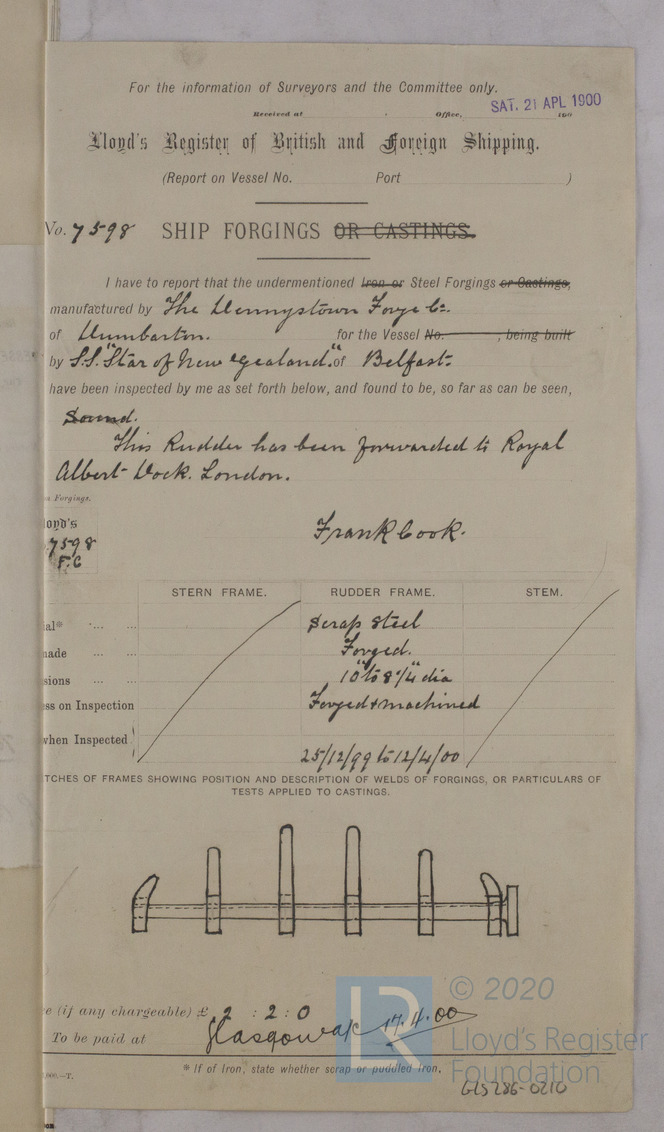 For the information of Surveyors and the Committee only.
SAT. 21 APL 1900
Received at Office, 190
Lloyd's Register of British and Foreign Shipping.
(Report on Vessel No. Port )
No. 7598 SHIP FORGINGS OR CASTINGS.
I have to report that the undermentioned Iron or Steel Forgings or Castings,
manufactured by The Dennystown Forge Co.
of Dumbarton. for the Vessel No. , being built
by S.S. "Star of New Zealand." of Belfast.
have been inspected by me as set forth below, and found to be, so far as can be seen,
Sound.
This Rudder has been forwarded to Royal
Albert Dock. London.
Forgings.
loyd's
7598
F.C
Frank Cook.
STERN FRAME. RUDDER FRAME. STEM.
ial* ... ... Scrap Steel
made ... ... Forged.
sions ... ... 10" to 8 1/4" dia
ess on Inspection Forged & machined
when Inspected 25/12/99 to 12/4/00
TCHES OF FRAMES SHOWING POSITION AND DESCRIPTION OF WELDS OF FORGINGS, OR PARTICULARS OF
TESTS APPLIED TO CASTINGS.
e (if any chargeable) £ 2 : 2 : 0
To be paid at Glasgow 17.4.00
* If of Iron, state whether scrap or puddled iron.
000.—T.
LR
© 2020
Lloyd's Register
Foundation
GLS286-0210